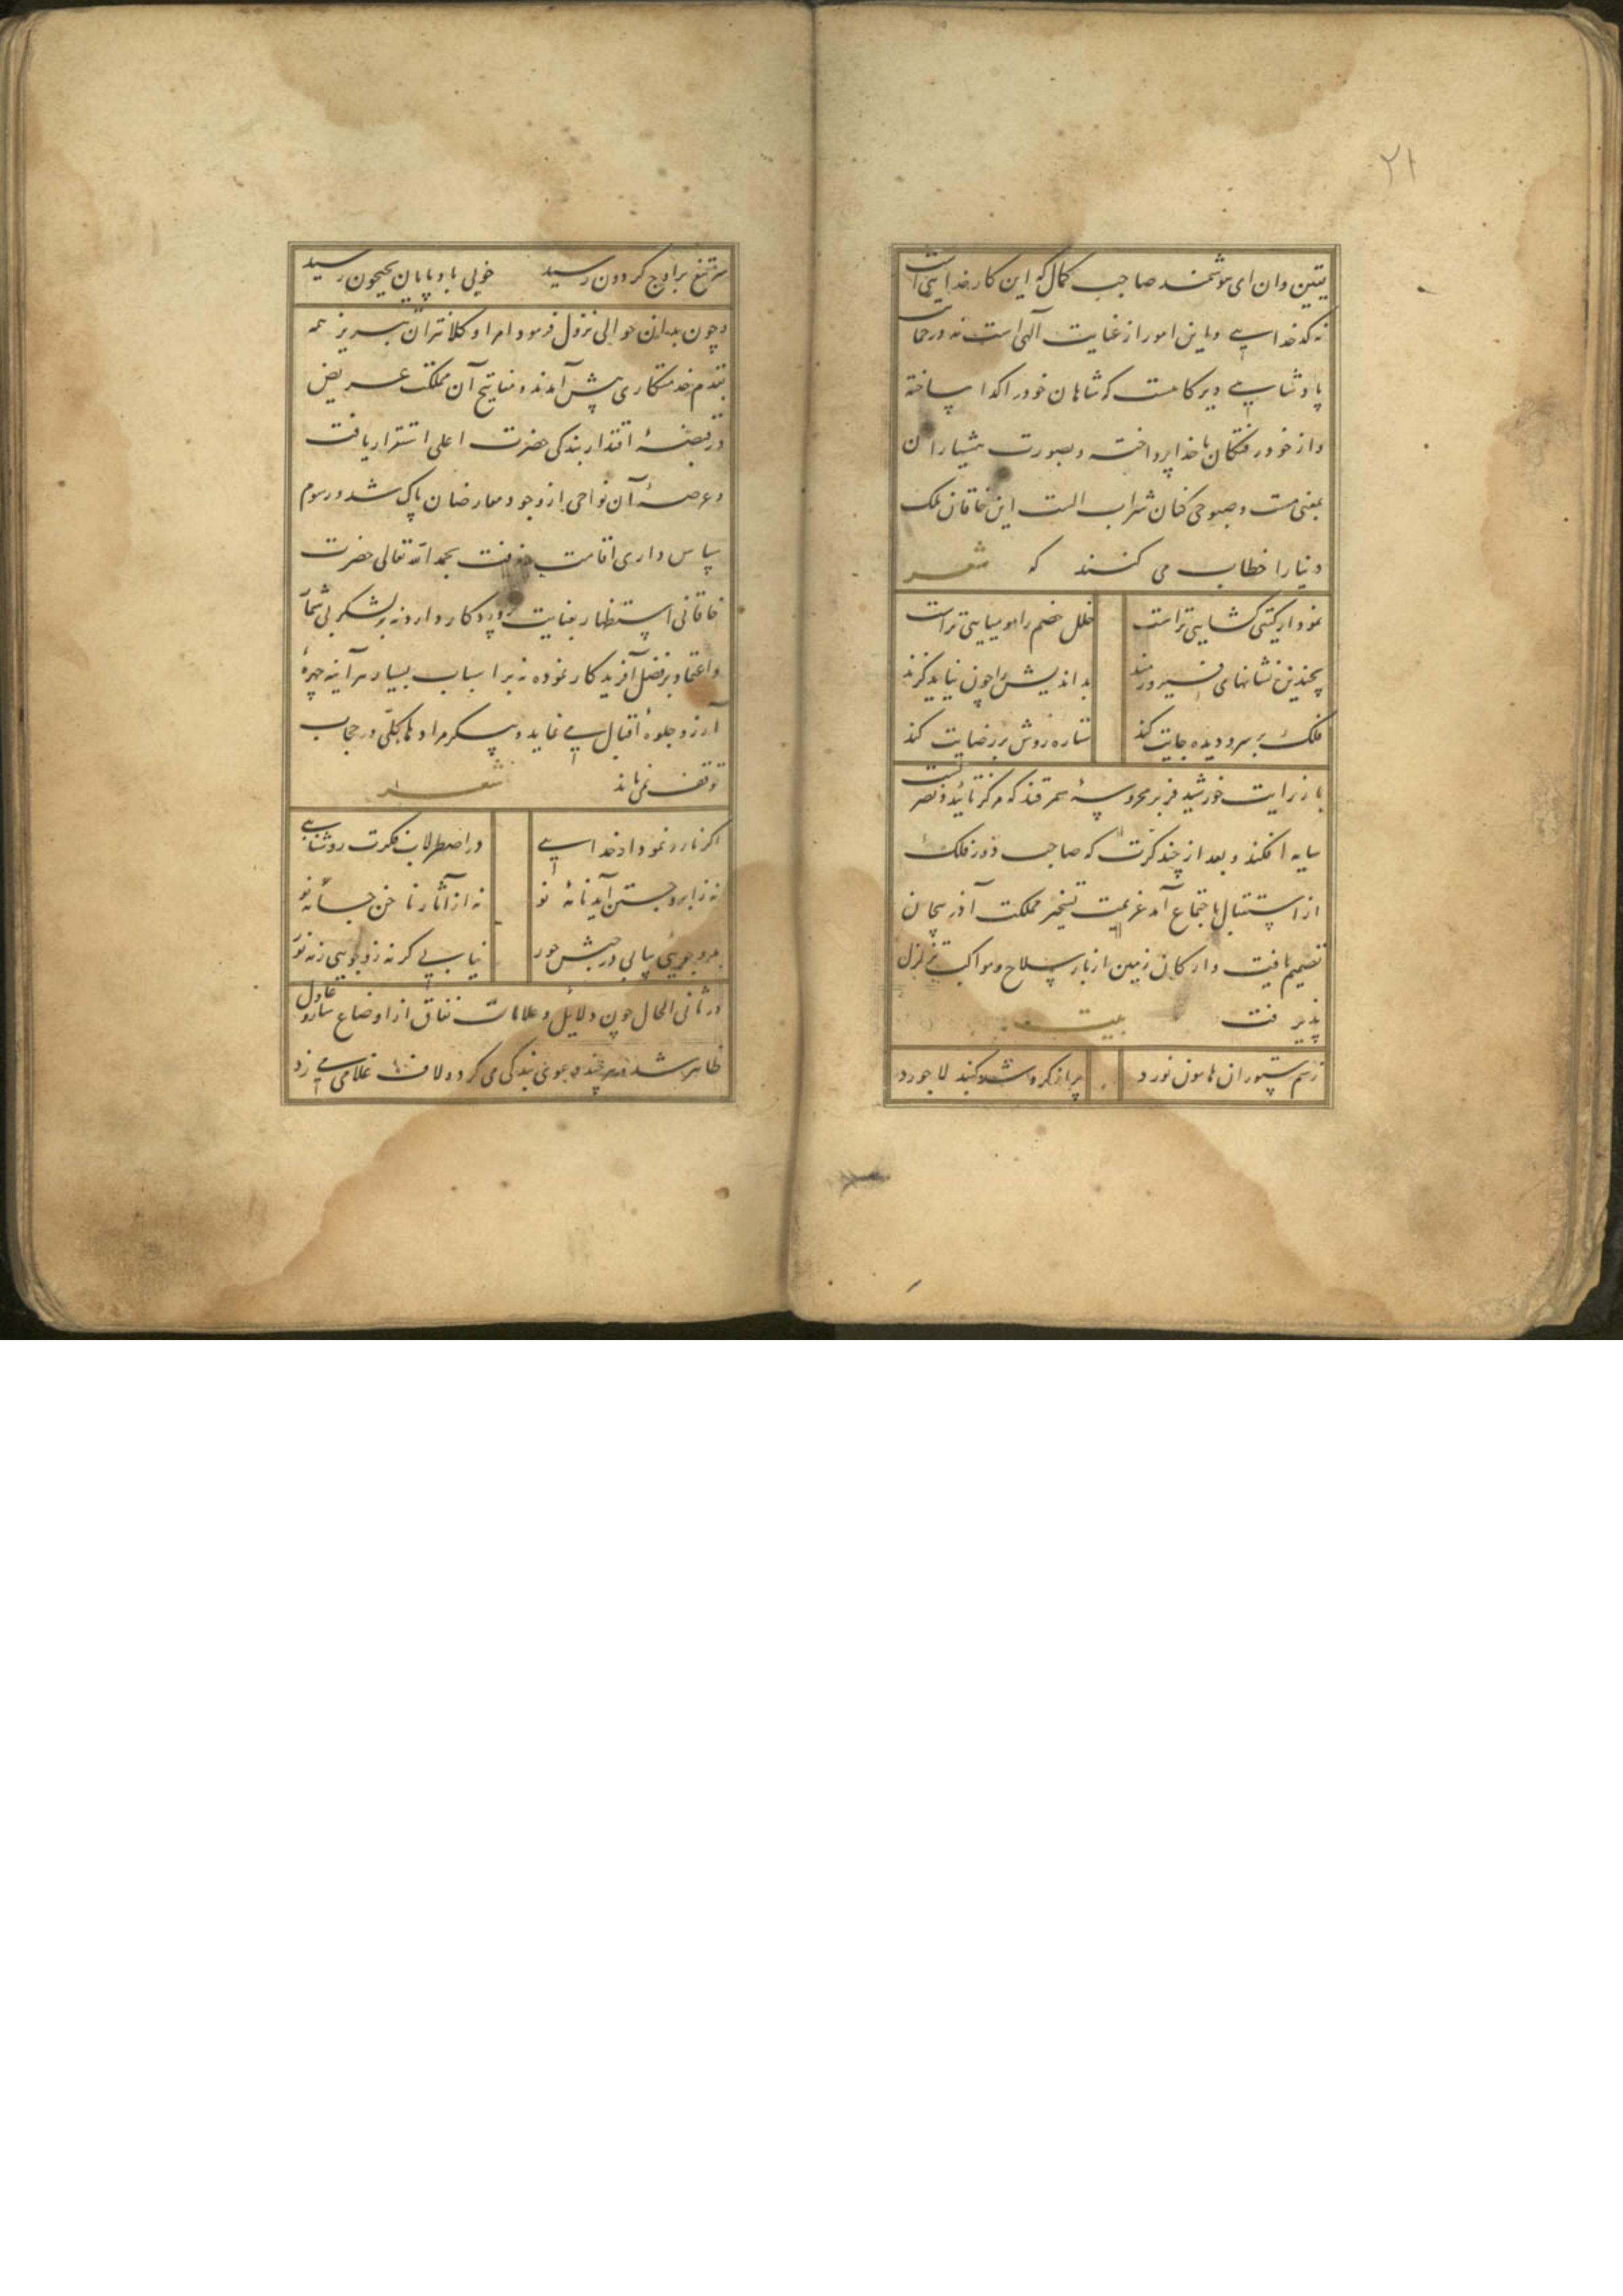 ۲۱
یقین دان ای هوشمند صاحب کمال که این کار خدایی است
نه کدخدایی و این امور از عنایت آلهی است نه در حمایت
پادشاهی دیرگاهست که شاهان خود را کدا ساخته
و از خود رفتگان با خدا پرداخته و بصورت هشیاران
بمعنی مست و صبوحی کنان شراب الست این خاقان ملک
دنیا را خطاب می کنند که شعر
نمودار کیتی کشایی تراست خلل خصم را مومیایی تراست
بچندین نشانهای فیروزمند بداندیش را چون نیاید کزند
فلک بر سر و دیده جایت کند ستاره روش بر رضایت کند
باز رایت خورشید فر بر محروسهٔ سمرقند که مرکز تائید و نصرتست
سایه افکند و بعد از چند کرت که صاحب دور فلک
از استقبال باجتماع آمد عزیمت تسخیر مملکت آذربیجان
تصمیم یافت و ارکان زمین از بار سلاح و مواکب تزلزل
پذیرفت بیت
ز سم ستوران هامون نورد پر از کرد شد کنبد لاجورد
سر تیغ بر اوج کردون رسید خوی بادپایان بجیحون رسید
و چون بدان حوالی نزول فرمود امرا و کلانتران تبریز همه
بقدم خدمتکاری پیش آمدند و مفاتیح آن مملکت عریض
در قبضهٔ اقتدار بندکی حضرت اعلی استقرار یافت
و عرصهٔ آن نواحی از وجود معارضان پاک شد و رسوم
سپاس داری اقامت رفت بحمد الله تعالی حضرت
خاقانی استظهار بعنایت پروردکار دارد نه بر لشکر بی شمار
و اعتماد بر فضل آفریدکار نموده نه بر اسباب بسیار هرآینه چهرهٔ
آرزو جلوه اقبال می نماید و پیکر مرادها بکلی در حجاب
توقف نمی ماند شعر
اکر نارد نمودار خدایی در اصطرلاب فکرت روشنایی
نه ز ابرو جستن آید نامهٔ نو نه از آثار ناخن جامهٔ نو
بدو جویی بیابی در حبش حور نیابی کر نه زو جویی ز مه نور
در ثانی الحال چون دلایل و علامات نفاق از اوضاع سارو عادل
ظاهر شد هر چند دعوی بندکی می کرد و لاف غلامی می زد